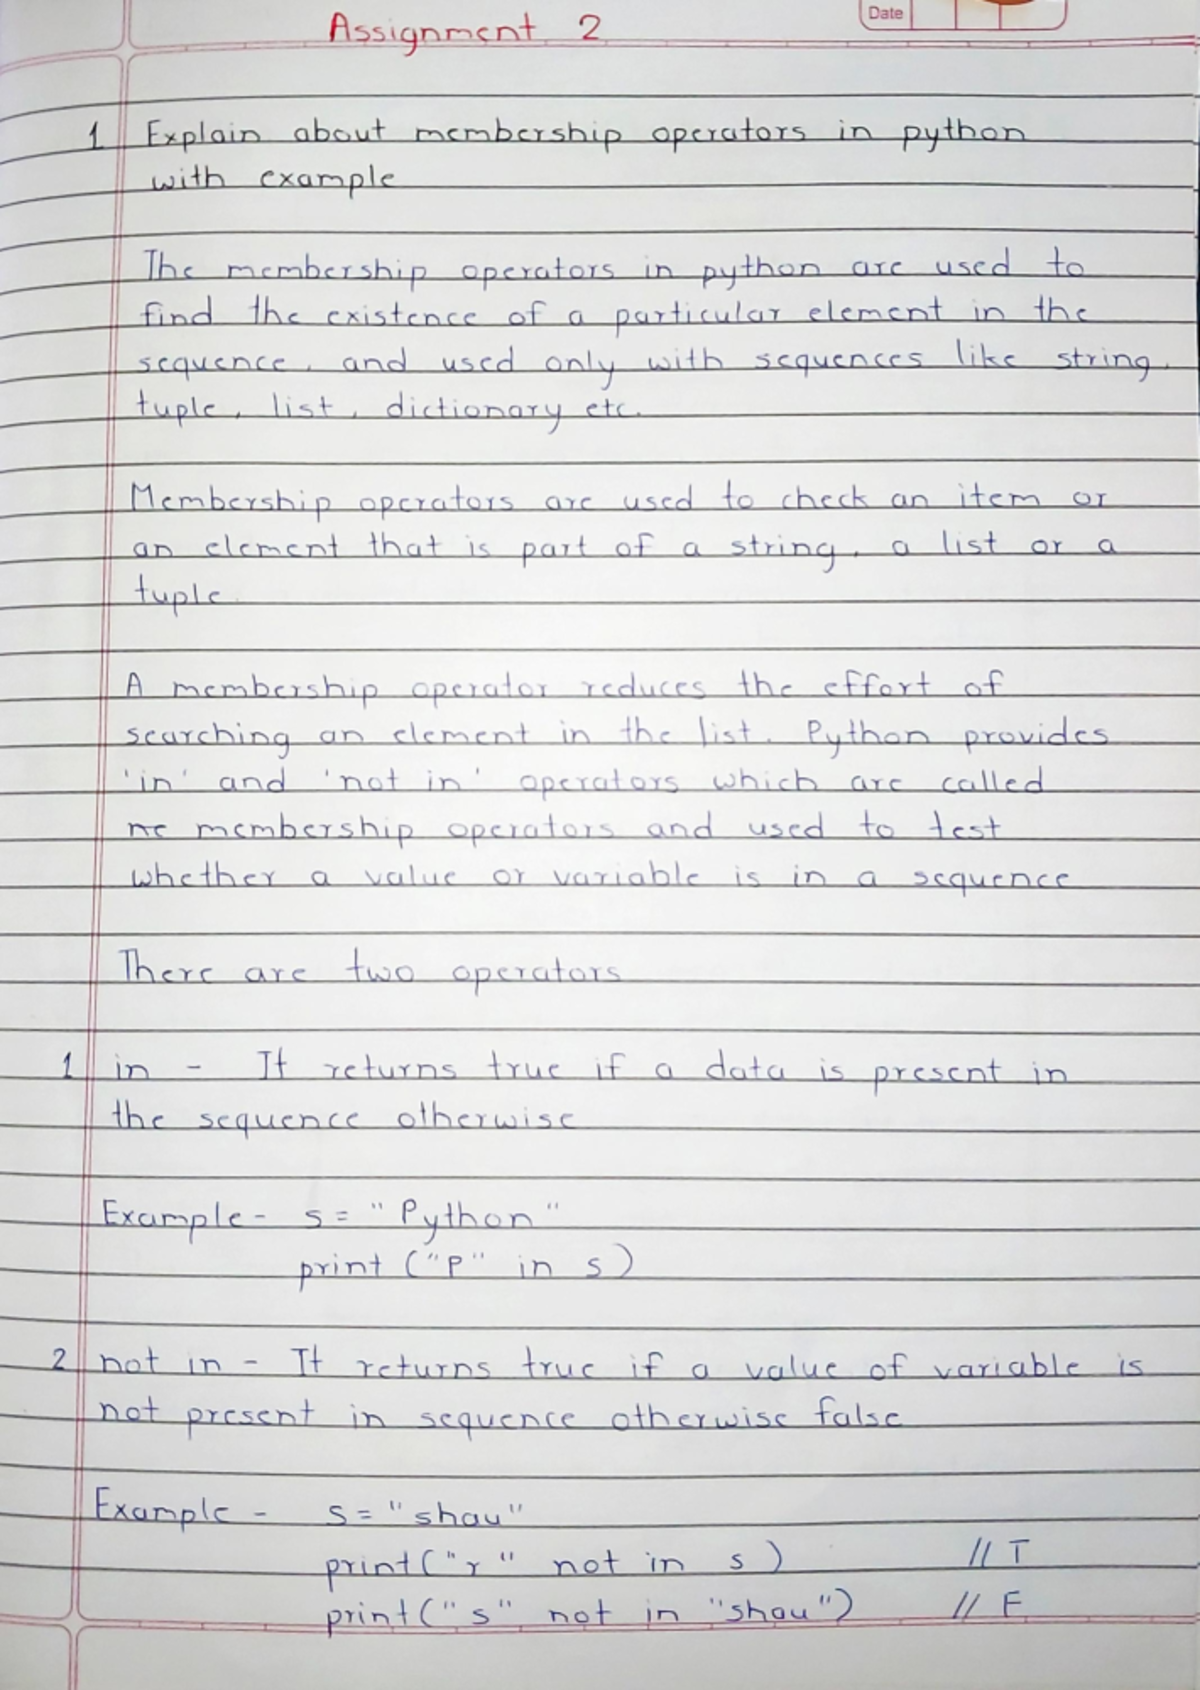 Assignment 2
Date
1 Explain about membership operators in python
with example
The membership operators in python are used to
find the existence of a particular element in the
sequence, and used only with sequences like string,
tuple, list, dictionary etc.
Membership operators are used to check an item or
an element that is part of a string, a list or a
tuple.
A membership operator reduces the effort of
searching an element in the list. Python provides
'in' and 'not in' operators which are called
membership operators and used to test
whether a value or variable is in a sequence
There are two operators
1 in - It returns true if a data is present in
the sequence otherwise
Example - s = "Python"
print ("P" in s)
2 not in - It returns true if a value of variable is
not present in sequence otherwise false
Example - s = "shau"
print("r" not in s) // T
print("s" not in "shau") // F